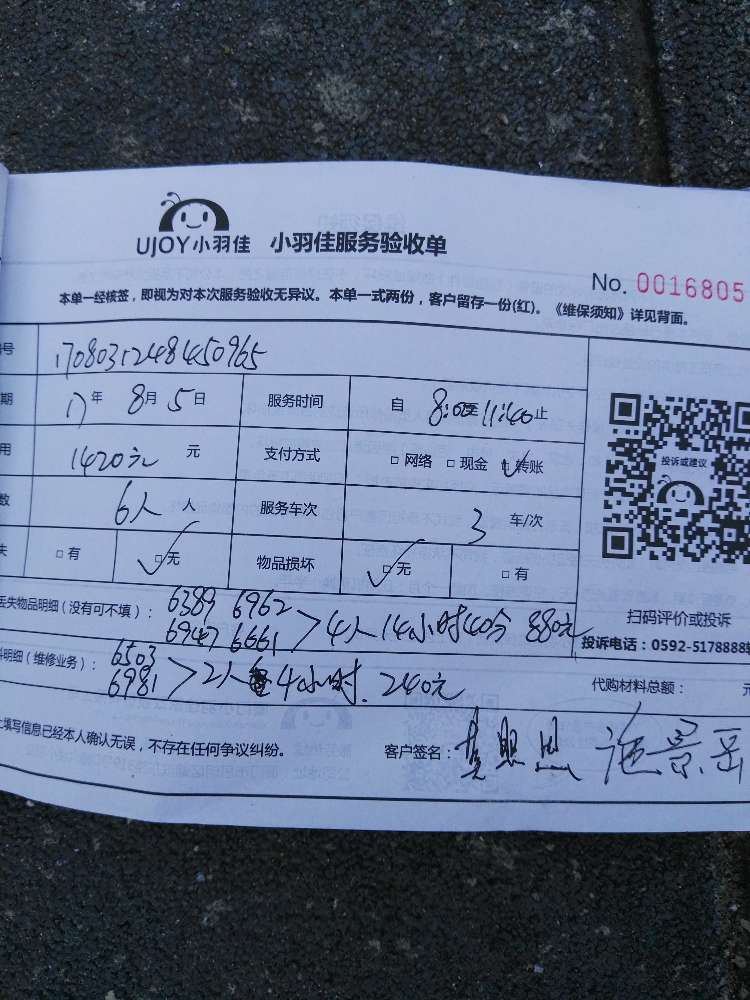 UJOY小羽佳 小羽佳服务验收单
No. 0016805
本单一经核签，即视为对本次服务验收无异议。本单一式两份，客户留存一份(红)。《维保须知》详见背面。
号 17080312484450965
期 17年 8月 5日 服务时间 自 8:00至 11:40止
用 1420元 元 支付方式 □网络 □现金 □转账
投诉或建议
数 6人 人 服务车次 3 车/次
失 □有 □无 物品损坏 □无 □有
丢失物品明细（没有可不填）： 6389 6962
6947 6661 > 4人 14小时40分 880元
扫码评价或投诉
投诉电话：0592-5178888
料明细（维修业务）： 6503
6981 > 2人 4小时. 240元
代购材料总额： 元
上填写信息已经本人确认无误，不存在任何争议纠纷。 客户签名：